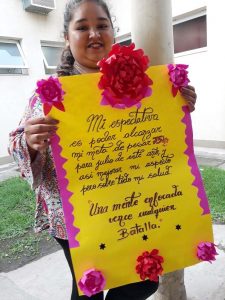 Mi espectativa
es poder alcanzar
mi meta de pesar
para julio de este año y
asi mejorar mi aspecto
pero sobre todo mi salud
"Una mente enfocada
vence cualquier
Batalla."